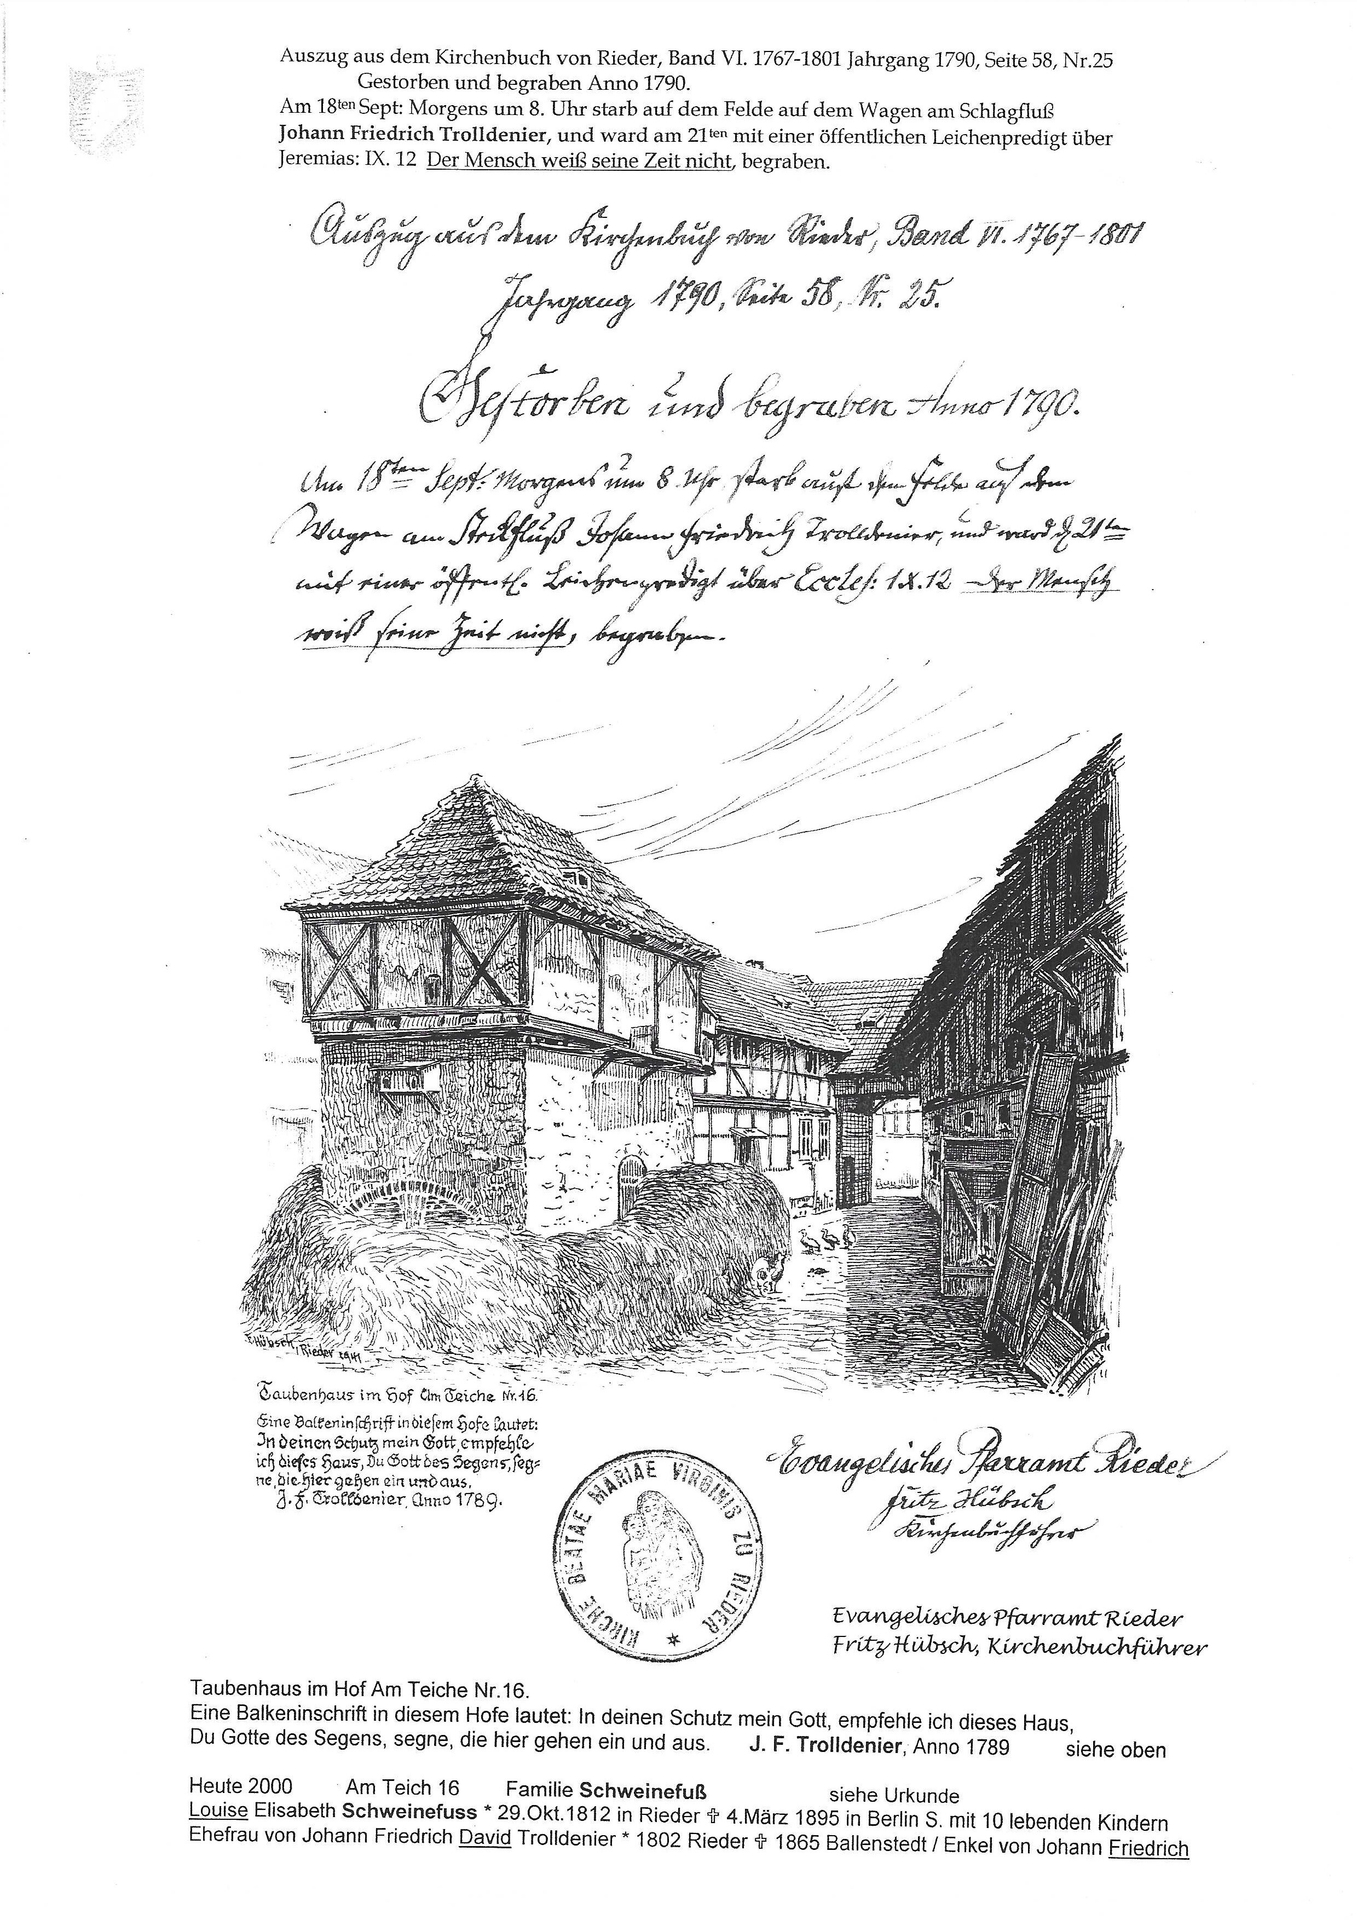 Auszug aus dem Kirchenbuch von Rieder, Band VI. 1767-1801 Jahrgang 1790, Seite 58, Nr.25
Gestorben und begraben Anno 1790.
Am 18ten Sept: Morgens um 8. Uhr starb auf dem Felde auf dem Wagen am Schlagfluß
Johann Friedrich Trolldenier, und ward am 21ten mit einer öffentlichen Leichenpredigt über
Jeremias: IX. 12 Der Mensch weiß seine Zeit nicht, begraben.
Auszug aus dem Kirchenbuch von Rieder, Band VI. 1767-1801
Jahrgang 1790, Seite 58, Nr. 25.
Gestorben und begraben Anno 1790.
Am 18ten Sept: Morgens um 8 Uhr starb auf dem Felde auf dem
Wagen am Steckfluß Johann Friedrich Trolldenier, und ward d 21ten
mit einer öffentl. Leichenpredigt über Eccles: IX.12 Der Mensch
weiß seine Zeit nicht, begraben.
F. Hübsch, Rieder 1941
Taubenhaus im Hof Am Teiche Nr.16.
Eine Balkeninschrift in diesem Hofe lautet:
In deinen Schutz mein Gott, empfehle
ich dieses Haus, Du Gott des Segens, seg=
ne, die hier gehen ein und aus.
J. F. Trolldenier, Anno 1789.
KIRCHE BEATAE MARIAE VIRGINIS ZU RIEDER
Evangelisches Pfarramt Rieder
Fritz Hübsch
Kirchenbuchführer
Evangelisches Pfarramt Rieder
Fritz Hübsch, Kirchenbuchführer
Taubenhaus im Hof Am Teiche Nr.16.
Eine Balkeninschrift in diesem Hofe lautet: In deinen Schutz mein Gott, empfehle ich dieses Haus,
Du Gotte des Segens, segne, die hier gehen ein und aus. J. F. Trolldenier, Anno 1789 siehe oben
Heute 2000 Am Teich 16 Familie Schweinefuß siehe Urkunde
Louise Elisabeth Schweinefuss * 29.Okt.1812 in Rieder ✞ 4.März 1895 in Berlin S. mit 10 lebenden Kindern
Ehefrau von Johann Friedrich David Trolldenier * 1802 Rieder ✞ 1865 Ballenstedt / Enkel von Johann Friedrich